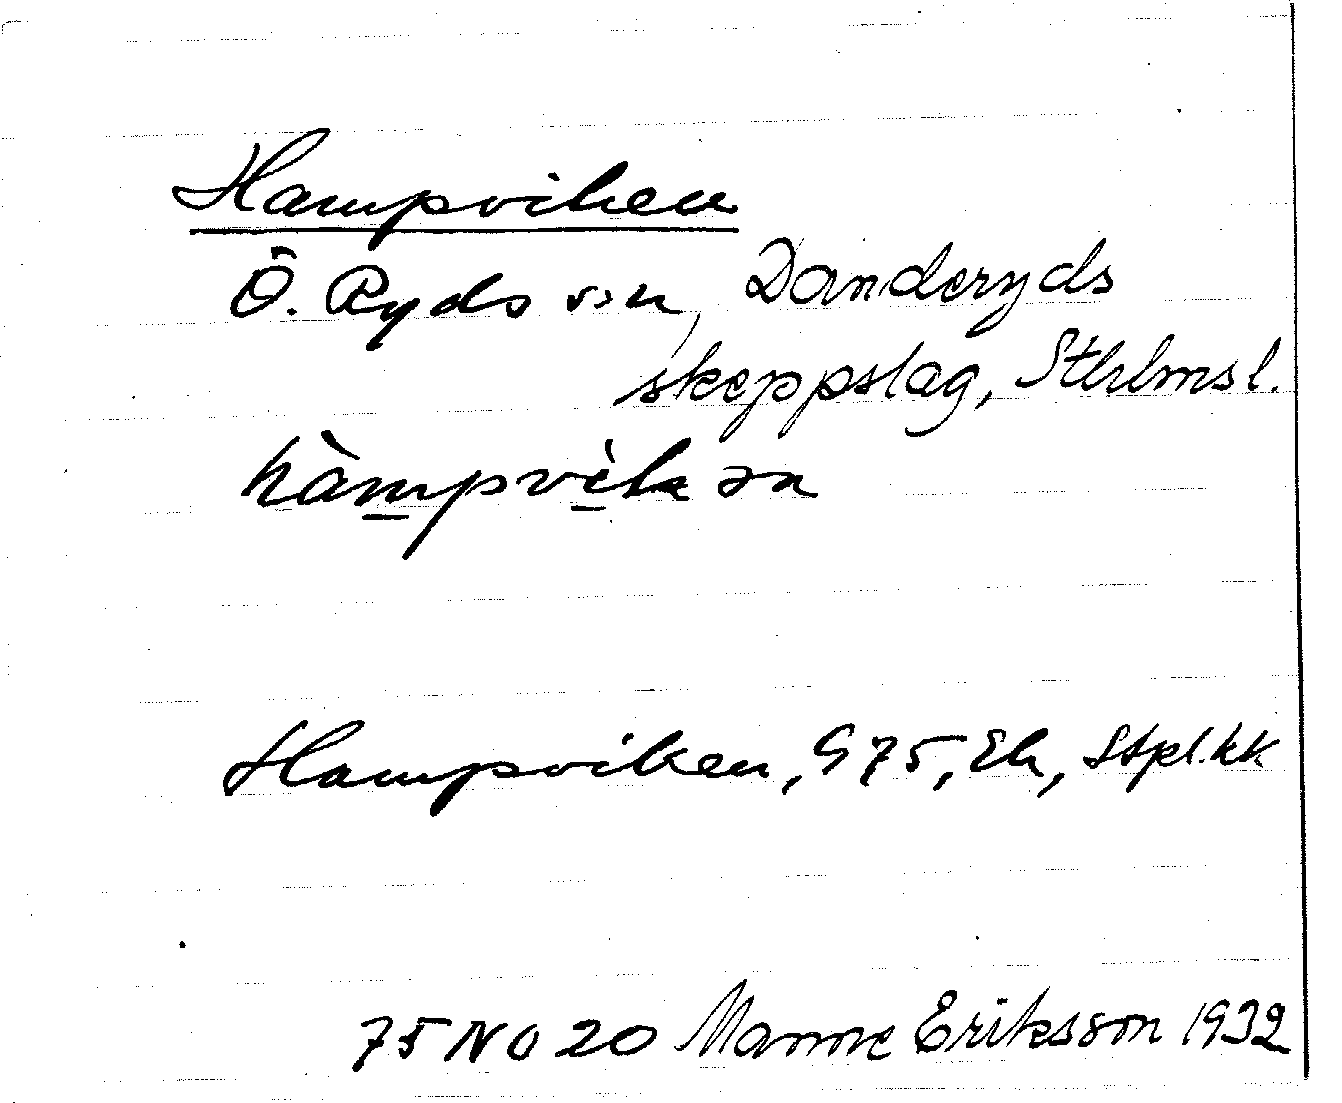 Hampviken
Ö. Ryds sn, Danderyds
skeppslag, Sthlmsl.
hàmpvìkən
Hampviken, G 75, Ek, Stpl. kk
75 NO 20 Manne Eriksson 1932